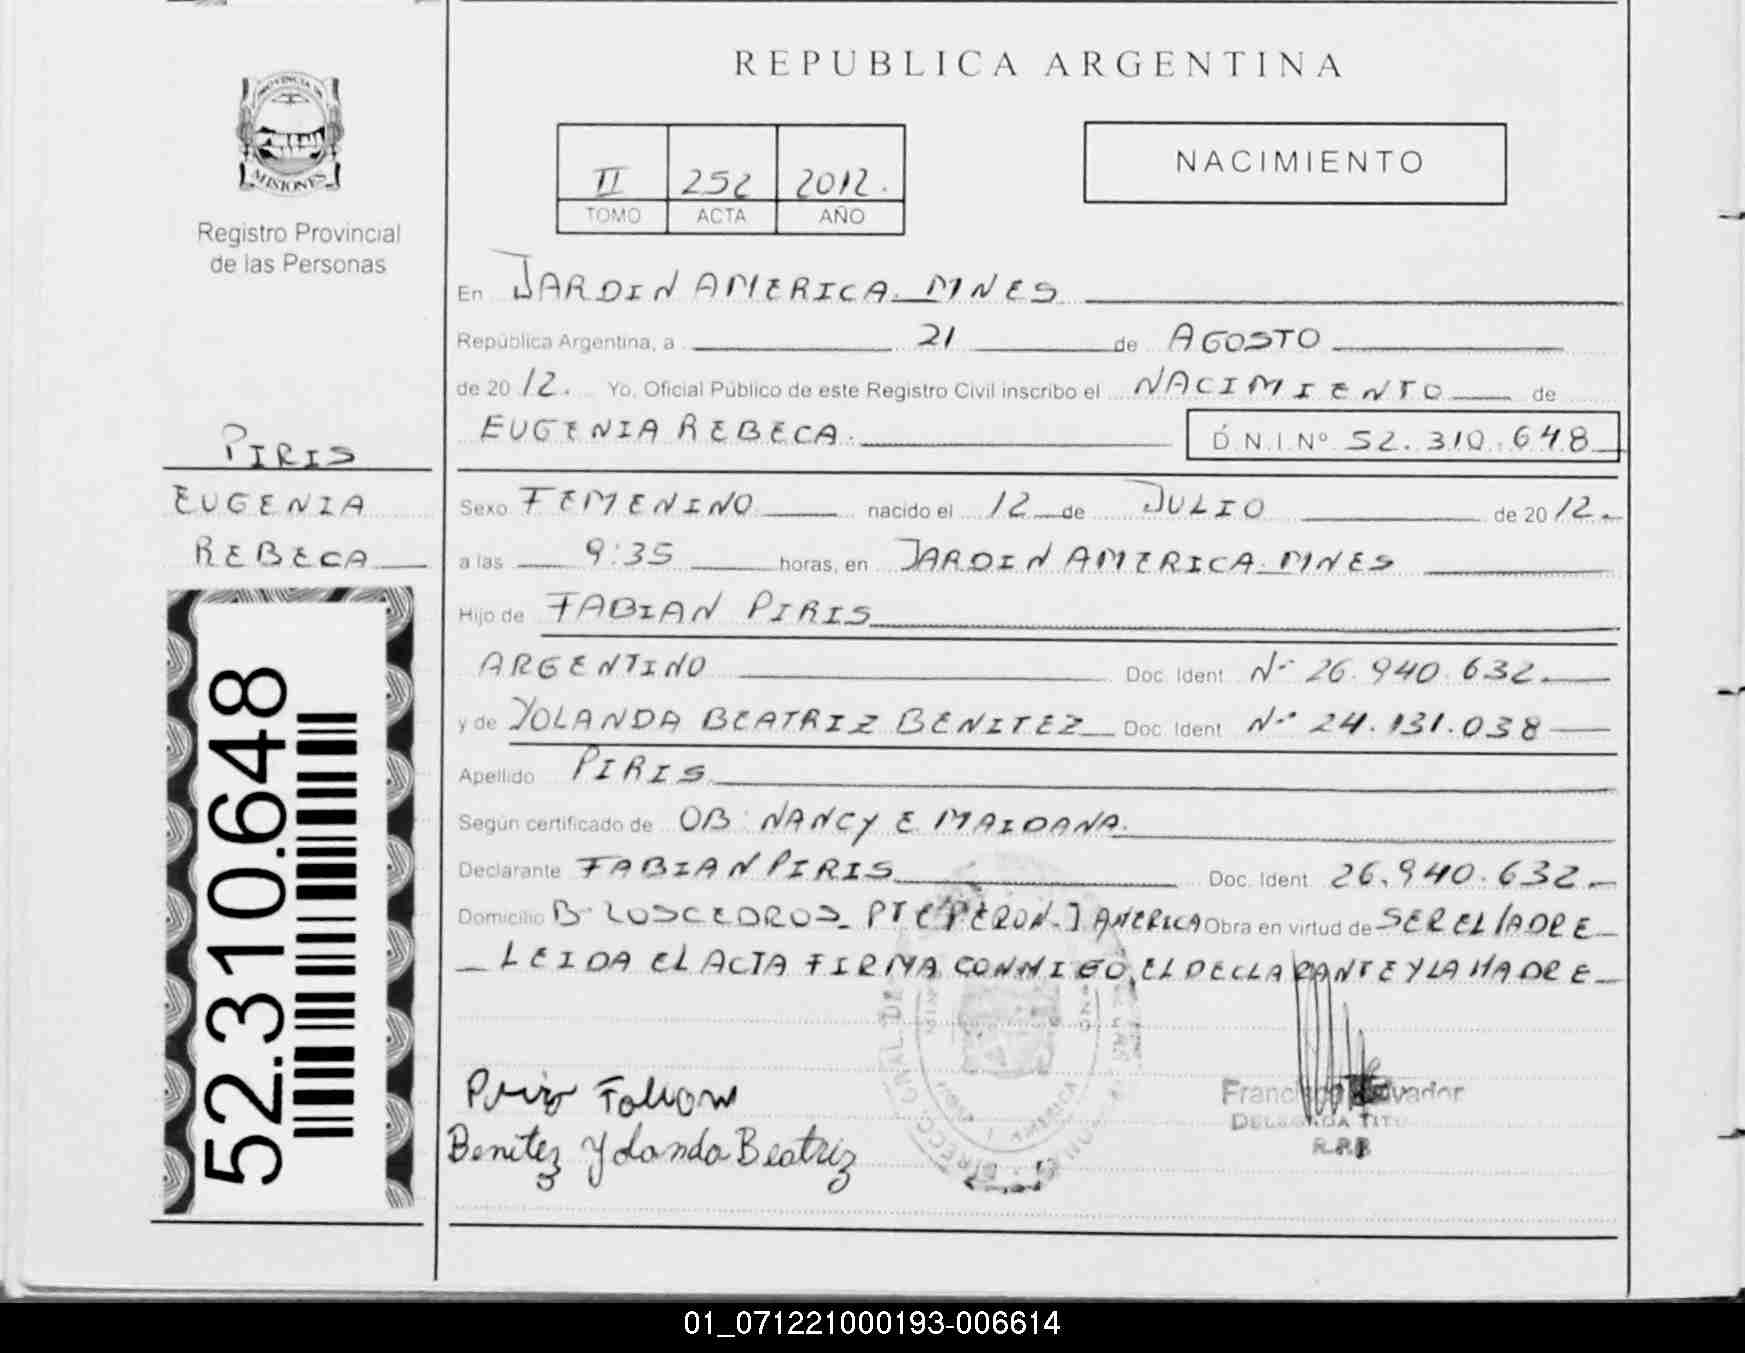 REPUBLICA ARGENTINA
PROVINCIA DE
MISIONES
Registro Provincial
de las Personas
II 252 2012.
TOMO ACTA AÑO
NACIMIENTO
En JARDIN AMERICA. MNES
República Argentina, a 21 de AGOSTO
de 2012. Yo, Oficial Público de este Registro Civil inscribo el NACIMIENTO de
EUGENIA REBECA. D.N.I.Nº 52.310.648
PIRIS
EUGENIA
REBECA
52.310.648
Sexo FEMENINO nacido el 12 de JULIO de 2012.
a las 9:35 horas, en JARDIN AMERICA. MNES
Hijo de FABIAN PIRIS
ARGENTINO Doc. Ident. Nº 26.940.632.
y de YOLANDA BEATRIZ BENITEZ Doc. Ident. Nº 24.131.038
Apellido PIRIS
Según certificado de OB. NANCY E MAIDANA.
Declarante FABIAN PIRIS Doc. Ident. 26.940.632.
Domicilio Bº LOS CEDROS. PTE PERON. J AMERICA Obra en virtud de SER EL PADRE
LEIDA EL ACTA FIRMA CONMIGO EL DECLARANTE Y LA MADRE
Piris Fabian
Benitez Yolanda Beatriz
R.P.P.
01_071221000193-006614